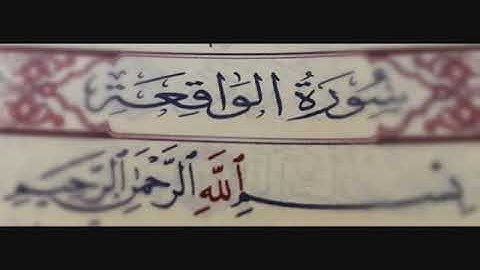 سُورَةُ الوَاقِعَةِ
بِسْمِ ٱللَّهِ ٱلرَّحْمَٰنِ ٱلرَّحِيمِ